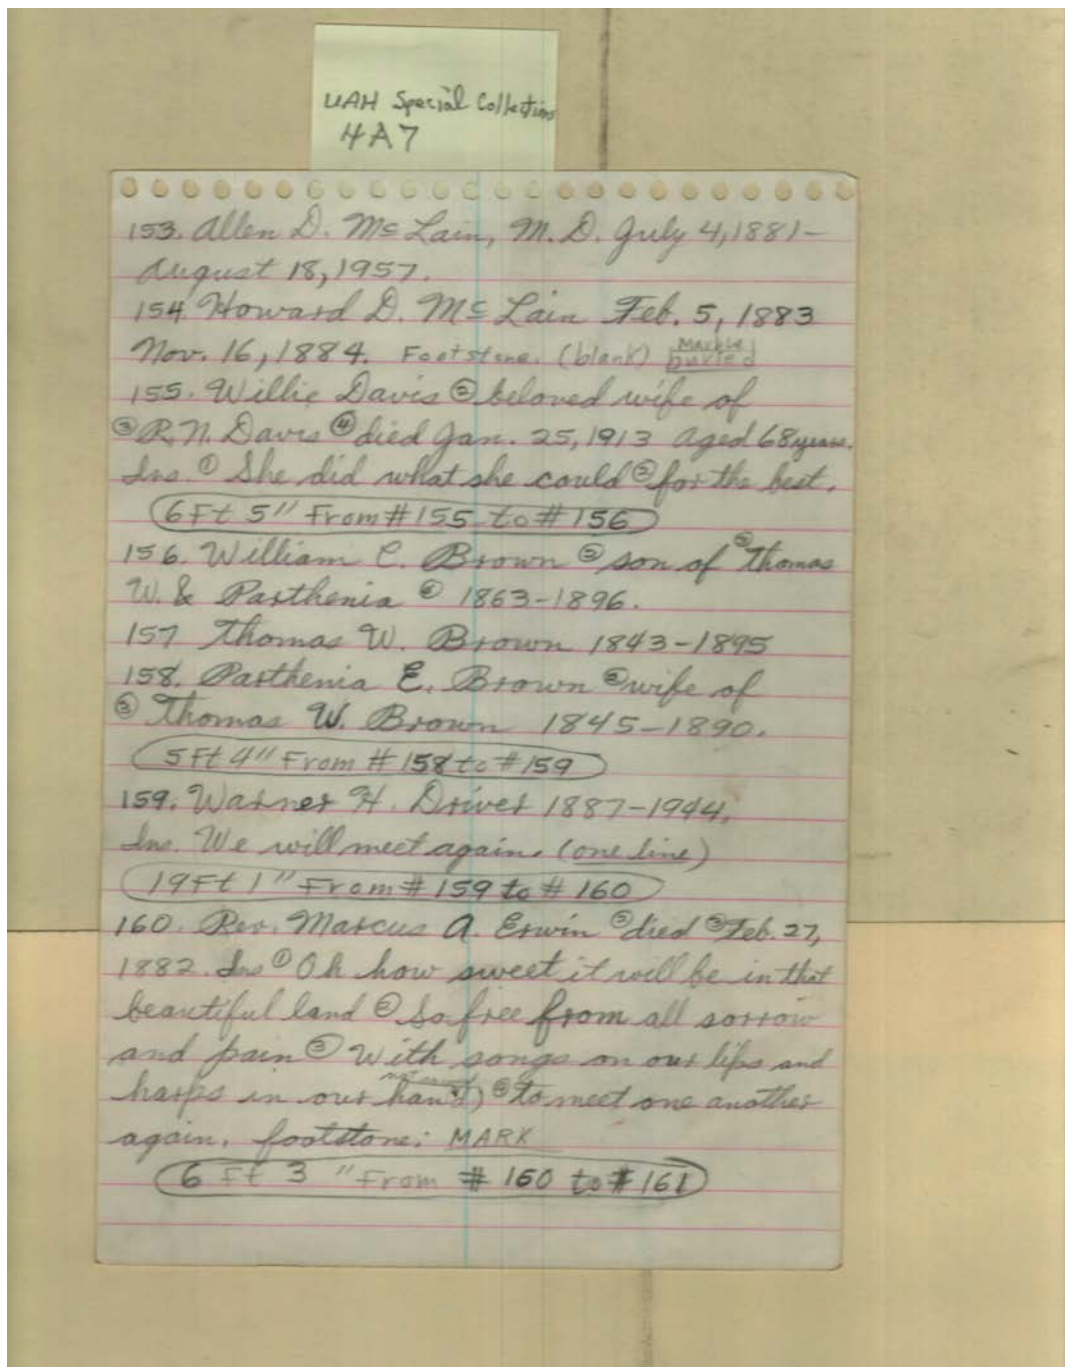 UAH Special Collections
4A7
153. Allen D. McLain, M.D. July 4, 1881–
August 18, 1957.
154. Howard D. McLain Feb. 5, 1883
Nov. 16, 1884. Footstone. (blank) Marble buried
155. Willie Davis ② beloved wife of
③ R.N. Davis ④ died Jan. 25, 1913 aged 68 years.
Ins. ① She did what she could ② for the best.
6 Ft 5" From #155 to #156
156. William C. Brown ② son of ③ Thomas
W. & Parthenia ④ 1863–1896.
157 Thomas W. Brown 1843–1895
158. Parthenia E. Brown ② wife of
③ Thomas W. Brown 1845–1890.
5 Ft 4" From #158 to #159
159. Warner H. Driver 1887–1944.
Ins. We will meet again. (one line)
19 Ft 1" From #159 to #160
160. Rev. Marcus A. Erwin ② died ③ Feb. 27,
1882. Ins ① Oh how sweet it will be in that
beautiful land ② So free from all sorrow
and pain ③ With songs on our lips and
harps in our hand) ④ to meet one another
again. footstone: MARK
6 Ft 3" From #160 to #161